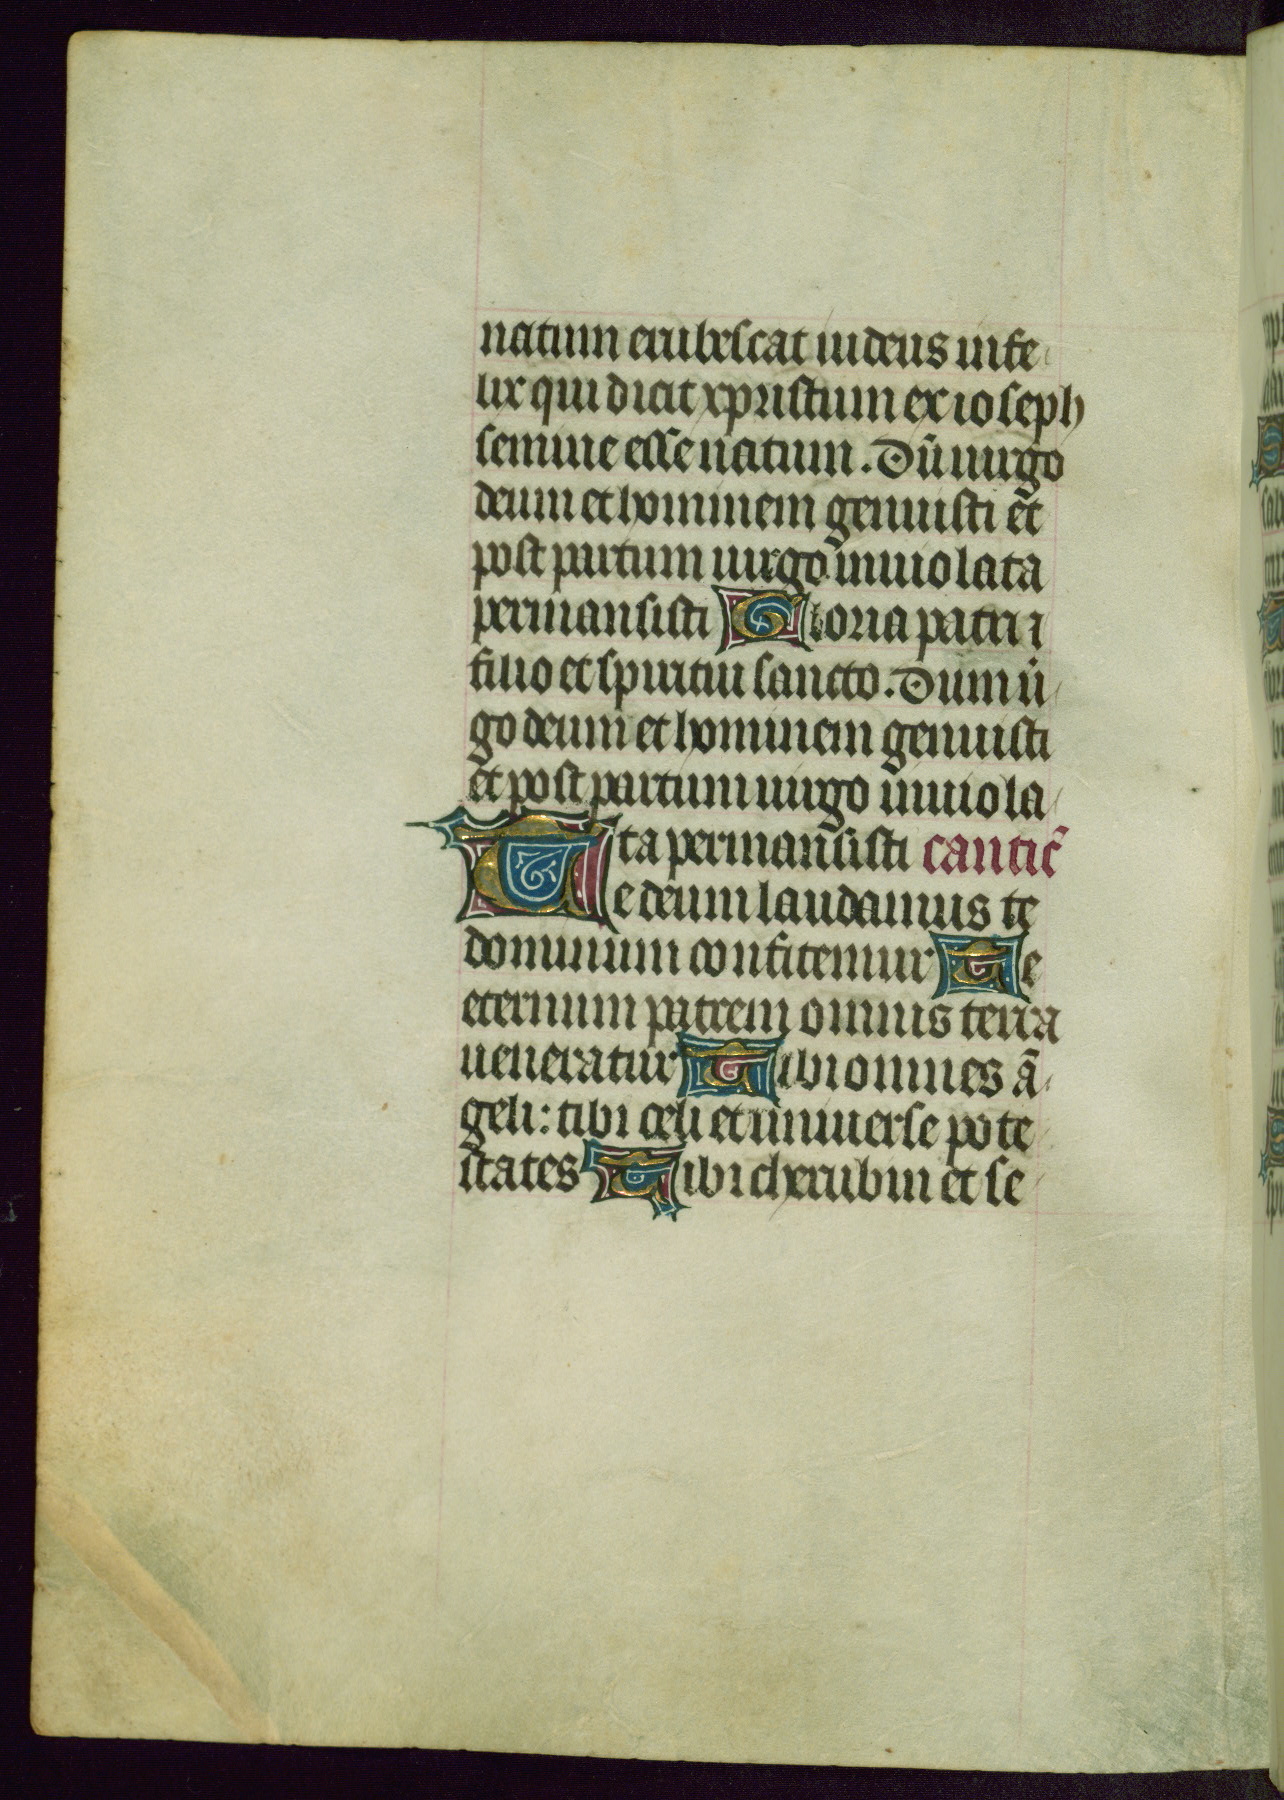 natum erubescat iudeus infe
lix qui dicit xpristum ex ioseph
semine esse natum. Dũ uirgo
deum et hominem genuisti et
post partum uirgo inuiolata
permansisti Gloria patri ⁊
filio et spiritui sancto. Dum ũ
go deum et hominem genuisti
et post partum uirgo inuiola
ta permansisti cantic̃
Te deum laudamus te
dominum confitemur Te
eternum patrem omnis terra
ueneratur Tibi omnes ã
geli: tibi celi et uniuerse pote
states Tibi cherubin et se